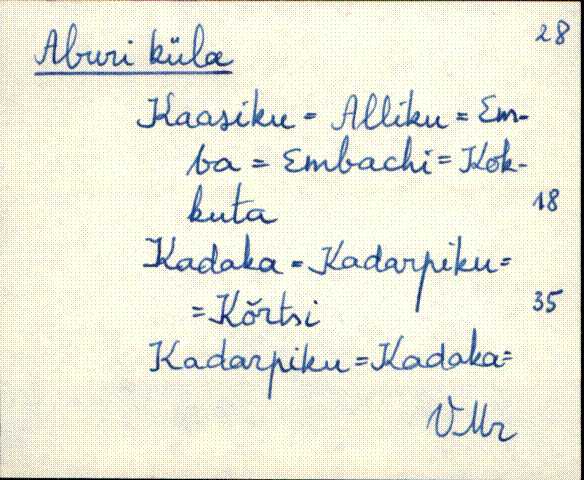 28
Aburi küla
Kaasiku = Alliku = Em-
ba = Embachi = Kok-
kuta 18
Kadaka = Kadarpiku =
= Kõrtsi 35
Kadarpiku = Kadaka =
VMr